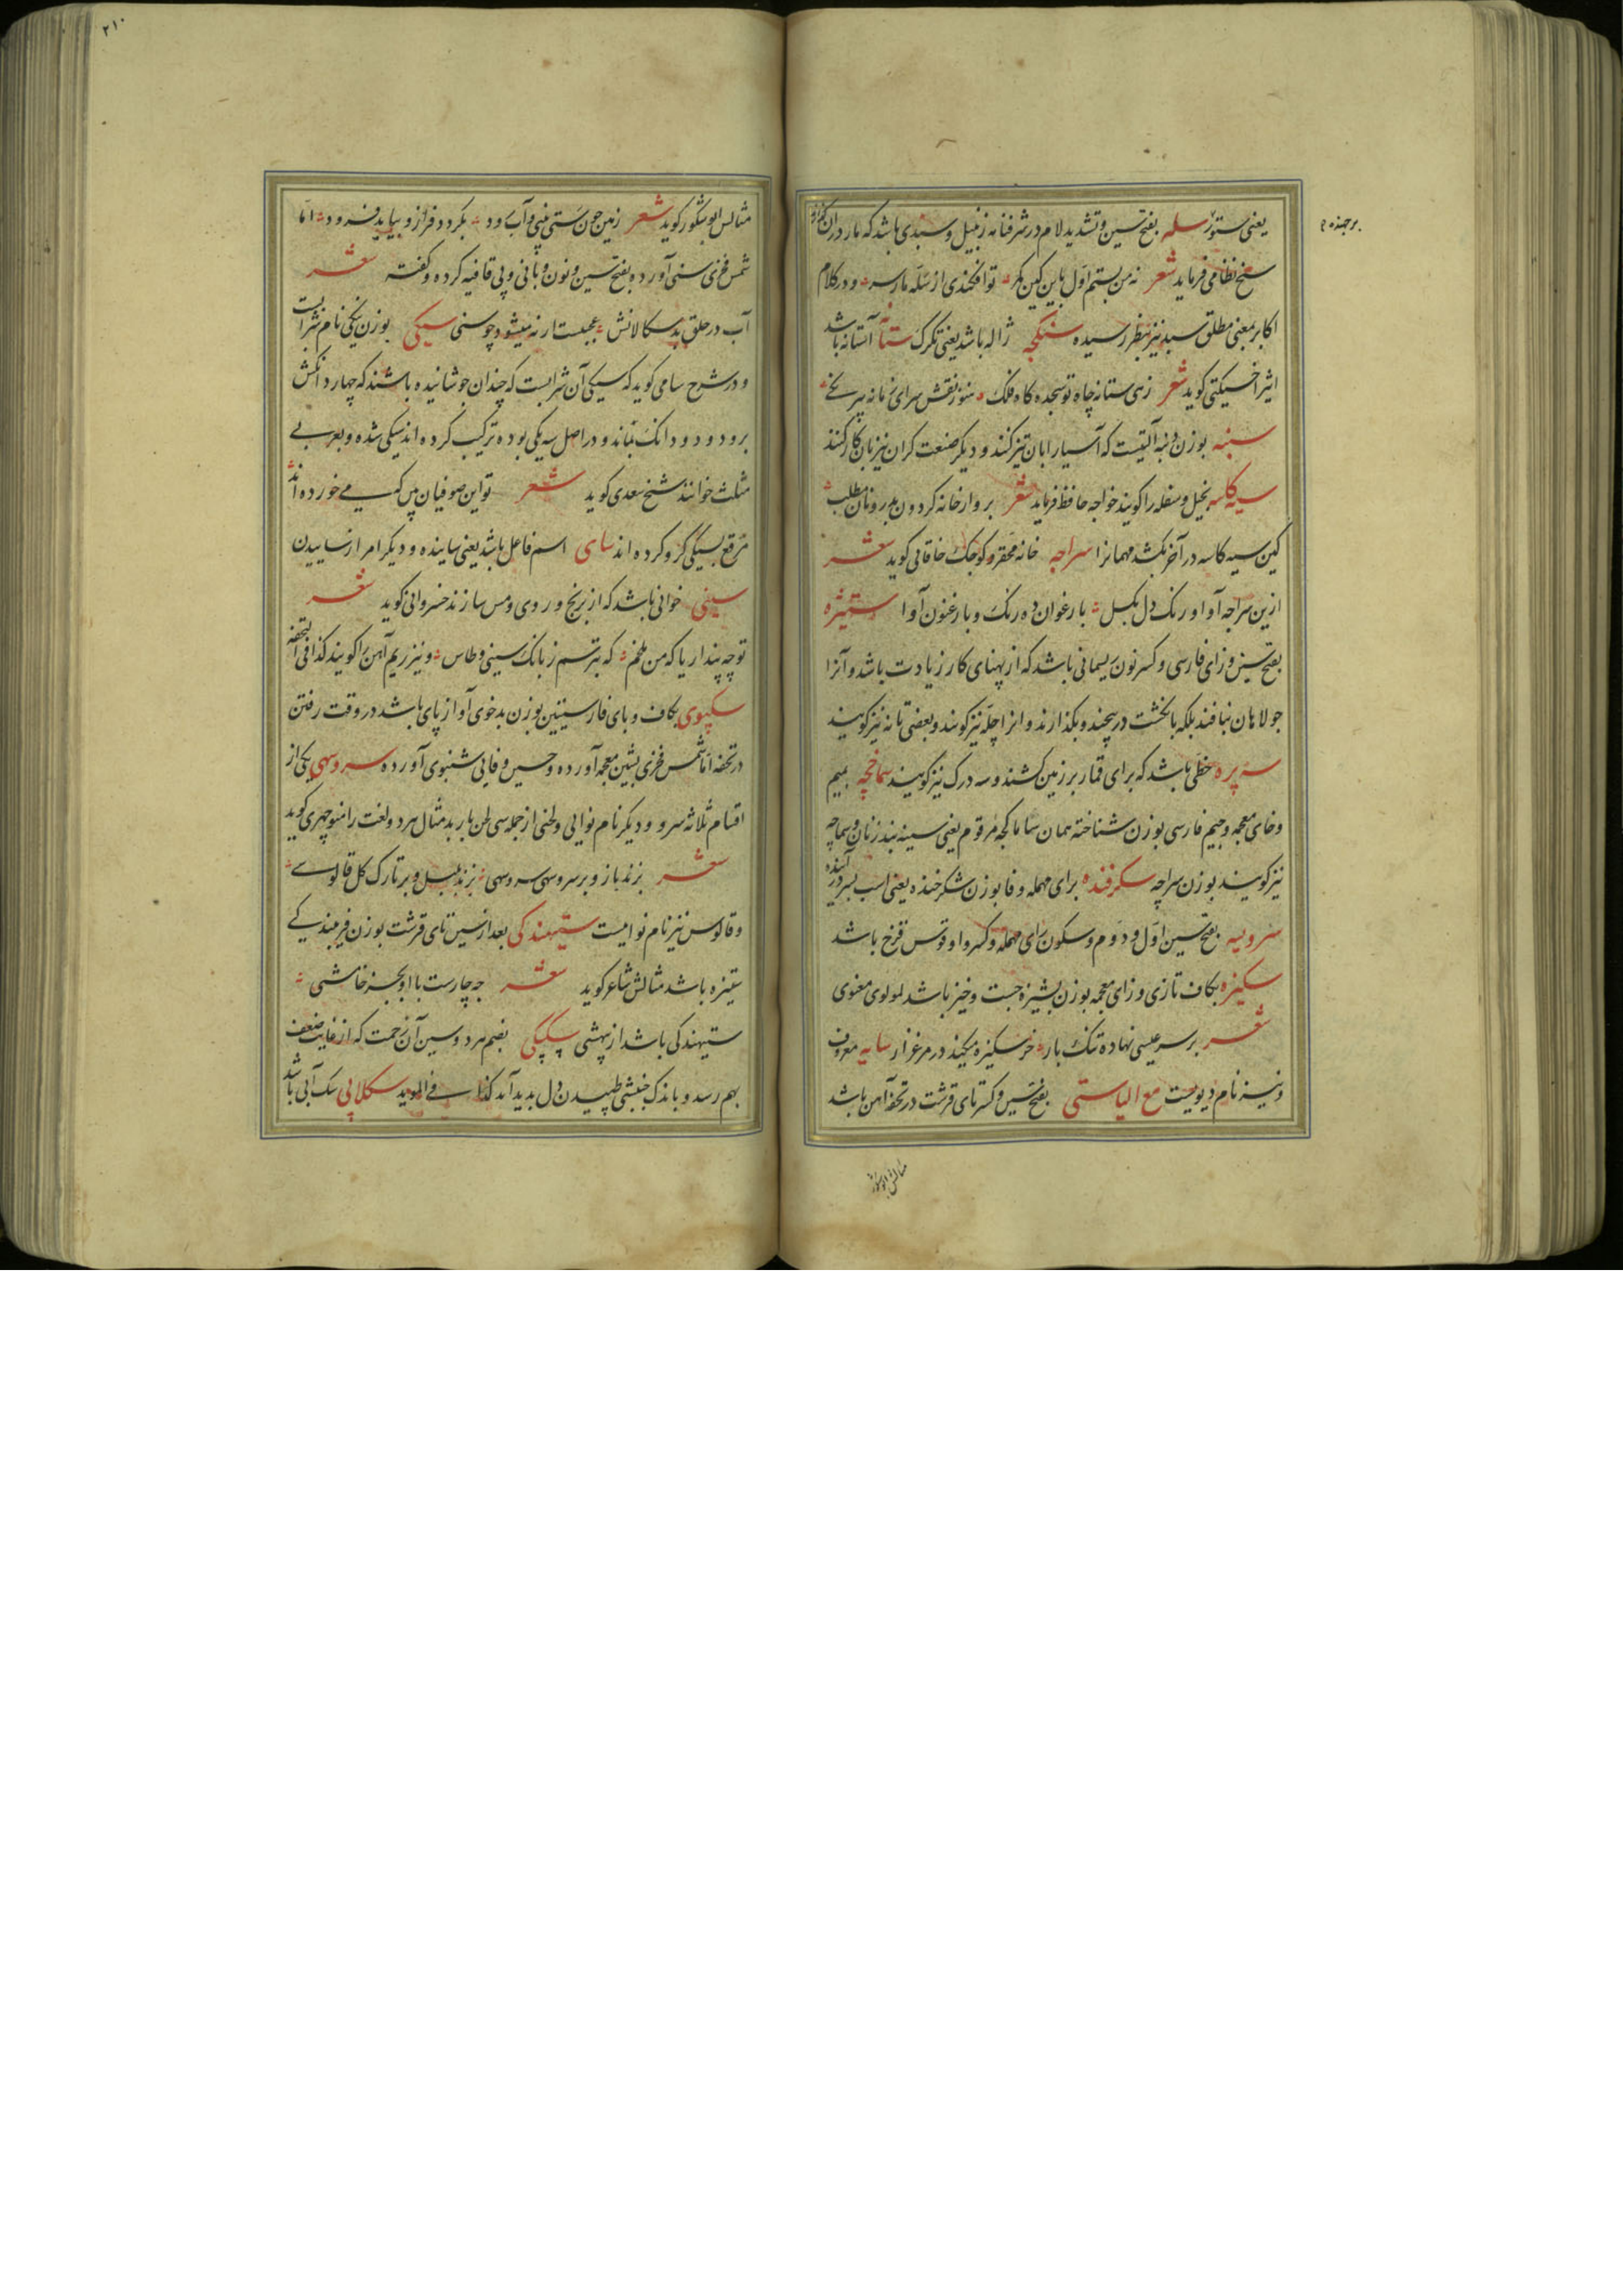 یعنی ستور سله بفتح سین و تشدید لام در شرفنامه زنبیل و سبدی باشد که مار در ان
شیخ نظامی فرماید شعر نه من بستم اول باین کین کمر تو افکندی از سله مار سر و در کلام
اکابر بمعنی مطلق سبد نیز بنظر رسیده سنگچه ژاله باشد یعنی تگرک ستانه آستانه باشد
اثیر اخسیکتی کوید شعر زهی ستانه جاه تو سجده کاه فلک هنوز نقش سرای زمانه بیر نخ
سنبه بوزن دنبه آلتیست که آسیا را بان تیز کنند و دیکر صنعت کران نیز بان کار کنند
سیه کاسه بخیل و سفله را کویند خواجه حافظ فرماید شعر برو از خانه کردون بدر و نان مطلب
کین سیه کاسه در آخر بکشد مهمانرا سراچه خانه محقر و کوچک خاقانی کوید شعر
ازین سراچه آوا و رنک دل بکسل بارغوان ده رنک و بارغنون آوا ستیژه
بفتح سین و زای فارسی و کسر نون ریسمانی باشد که از پهنای کار زیادت باشد و آنرا
جولاهان نبافند بلکه بانکشت در پیچند و بکذارند و انرا چله نیز کویند و بعضی تانه نیز کویند
سه پره خطی باشد که برای قمار بر زمین کشند و سه درک نیز کویند سماخچه بمیم
و خای معجمه و جیم فارسی بوزن شناخته همان ساماکچه مرقوم یعنی سینه بند زنان و سماچه
نیز کویند بوزن سراچه سکرفنده برای مهمله و فا بوزن شکر خنده یعنی اسب بسر در آینده
سرویسه بفتح سین اول و دوم و سکون رای مهمله و کسر واو قوس قزح باشد
سکیزه بکاف تازی و زای معجمه بوزن بشیزه جست و خیز باشد لمولوی معنوی
شعر بر سر عیسی نهاده تنک بار خر سکیزه میکند در مرغزار سایه معروف
و نیز نام دیویست مع الیا ستی بفتح سین و کسر تای قرشت در تحفه آهن باشد
مثالش ابوشکور
برجنده
۲۱۰
مثالش ابوشکور کوید شعر زمین چون ستی بینی و آب رود بکردد فراز و بیاید فرود اما
شمس فخری سنی آورده بفتح سین و نون و بانی و پی قافیه کرده و کفته شعر
آب در حلق بدسکالانش عجبست ار نه میشود چو سنی سیکی بوزن نیکی نام شرابیست
و در شرح سامی کوید که سیکی آن شرابست که چندان جوشانیده باشند که چهار دانکش
برود و دو دانک بماند و در اصل سه یکی بوده ترکیب کرده اند سیکی شده و بعربی
مثلث خوانند شیخ سعدی کوید شعر تو این صوفیان بین که می خورده اند
مرقع بسیکی کرو کرده اند سای اسم فاعل باشد یعنی ساینده و دیکر امر از ساییدن
سینی خوانی باشد که از برنج و روی و مس سازند خسروانی کوید شعر
تو چه پنداریا که من ملخم که بترسم ز بانک سینی و طاس و نیز ریم آهن را کویند کذا فی التحفه
سکپوی بکاف و بای فارسیتین بوزن بدخوی آواز پای باشد در وقت رفتن
در تحفه اما شمس فخری بشین معجمه آورده و حسین وفایی شنبوی آورده سرو سهی یکی از
اقسام ثلاثه سرو و دیکر نام نوایی و لحنی از جمله سی لحن باربد مثال هر دو لغت را منوچهری کوید
شعر بزند باز و بر سرو سهی سرو سهی بزند بلبل و بر تارک کل قالوسی
و قالوس نیز نام نواییست ستیهندکی بعد از سین تای قرشت بوزن فریبندکی
ستیزه باشد مثالش شاعر کوید شعر چه چارست با او بجز خامشی
ستیهندکی باشد از بیهشی سکسکی بضم هر دو سین آن زحمت که از غایت ضعف
بهم رسد و باندک جنبشی طپیدن دل بدید آید کذا فی المؤید سکلابی سک آبی باشد